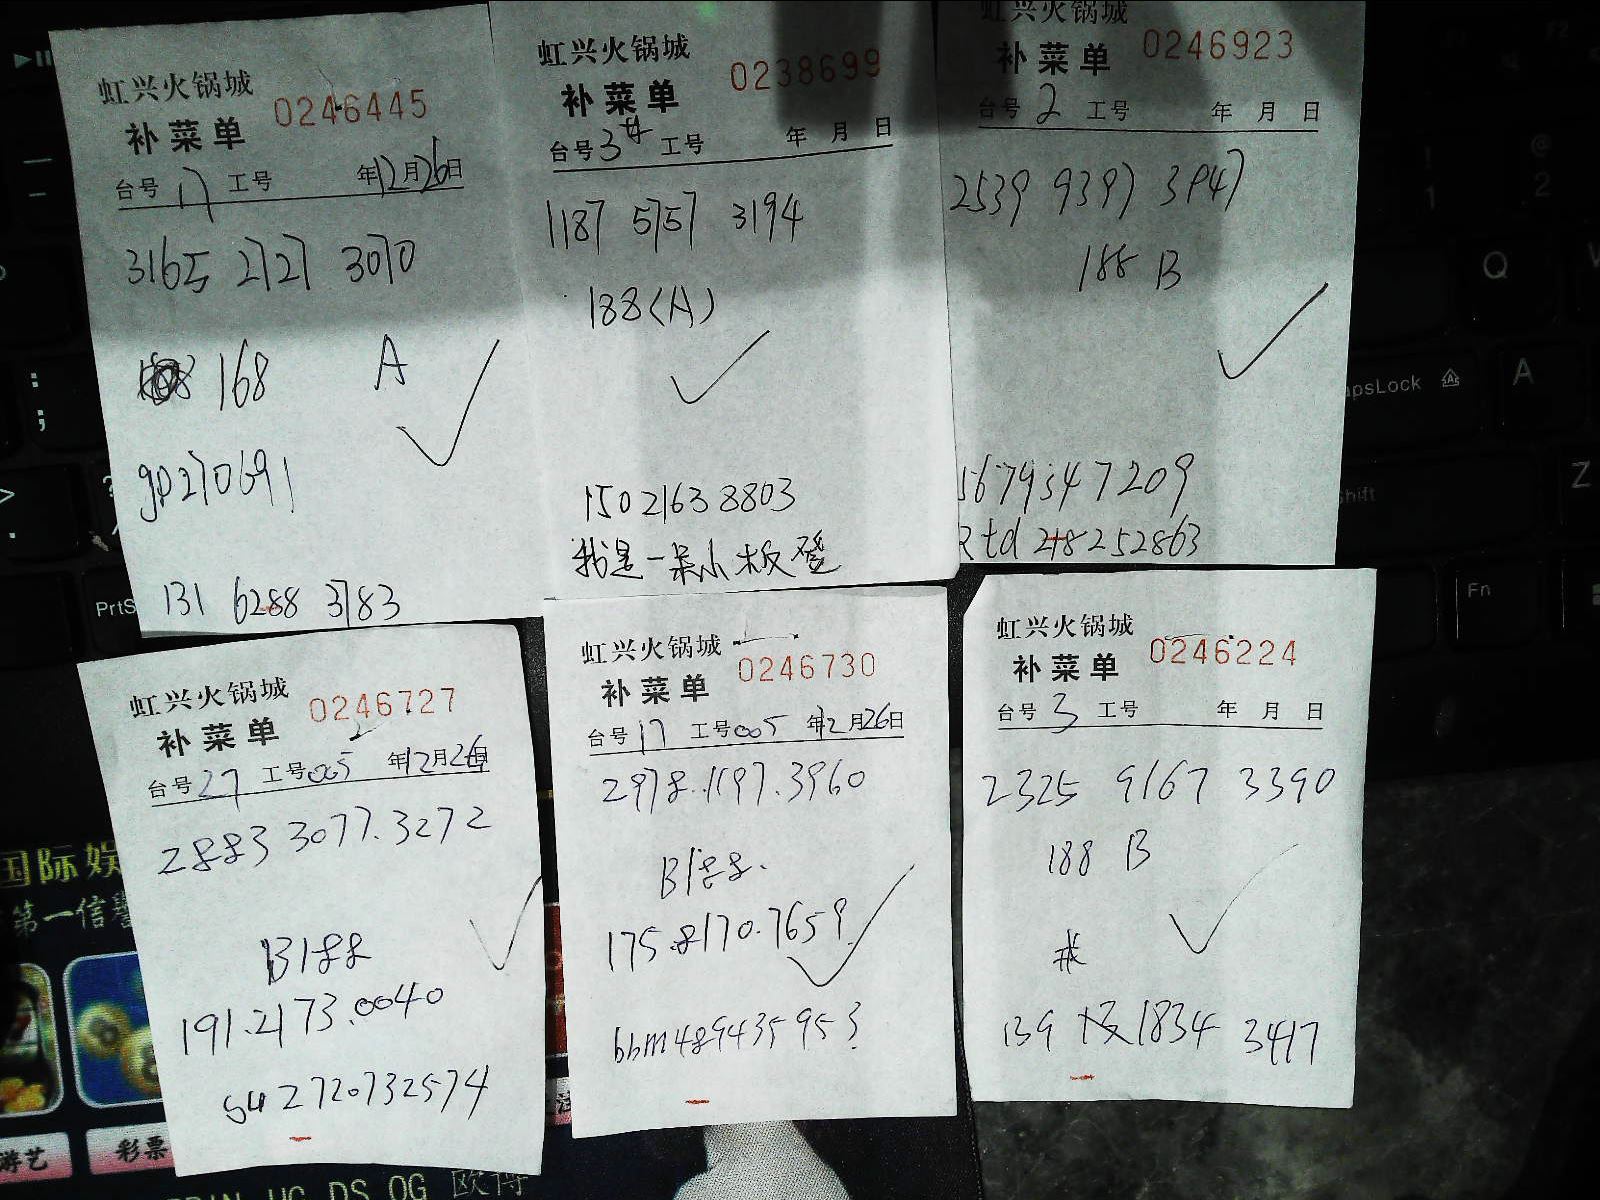 虹兴火锅城
补菜单 0246445
台号 17 工号 年12月26日
3165 2727 3070
168 A
gp270691
131 6288 3783
虹兴火锅城
补菜单 0238699
台号 3 工号 年 月 日
1187 5757 3194
188(A)
150 2163 8803
我是一呆小板凳
虹兴火锅城
补菜单 0246923
台号 2 工号 年 月 日
2539 9397 3947
188 B
虹兴火锅城
补菜单 0246727
台号 27 工号005 年12月26日
2883 3077.3272
B188
191.2173.0040
542720732574
虹兴火锅城
补菜单 0246730
台号 17 工号005 年12月26日
2978.1197.3960
B188.
175.8170.7659
bbm489435953
虹兴火锅城
补菜单 0246224
台号 3 工号 年 月 日
2325 9167 3390
188 B
139 1834 3417
PrtS
Q
A
Z
Fn
国际娱
第一信誉
游艺
彩票
DS OG 欧博